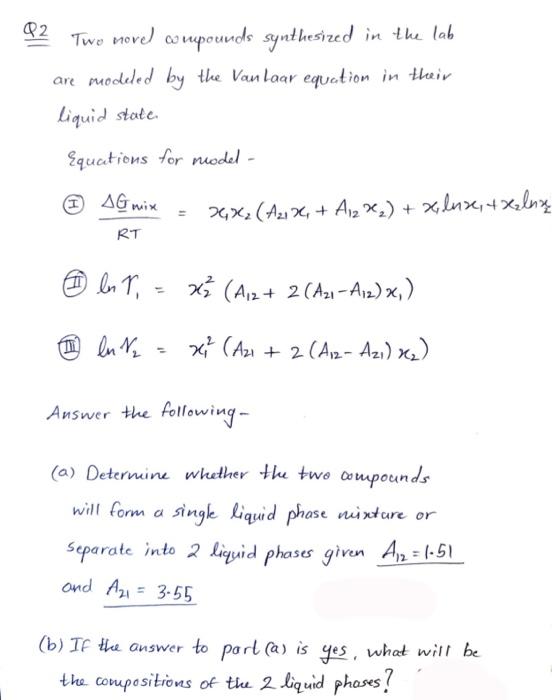 Q2 Two novel compounds synthesized in the lab
are modeled by the Vanlaar equation in their
liquid state.
Equations for model -
(I) ΔG mix / RT = x₁x₂ (A₂₁x₁ + A₁₂x₂) + x₁lnx₁ + x₂lnx₂
(II) ln γ₁ = x₂² (A₁₂ + 2(A₂₁-A₁₂)x₁)
(III) ln γ₂ = x₁² (A₂₁ + 2(A₁₂-A₂₁)x₂)
Answer the following -
(a) Determine whether the two compounds
will form a single liquid phase mixture or
separate into 2 liquid phases given A₁₂ = 1.51
and A₂₁ = 3.55
(b) If the answer to part (a) is yes, what will be
the compositions of the 2 liquid phases?